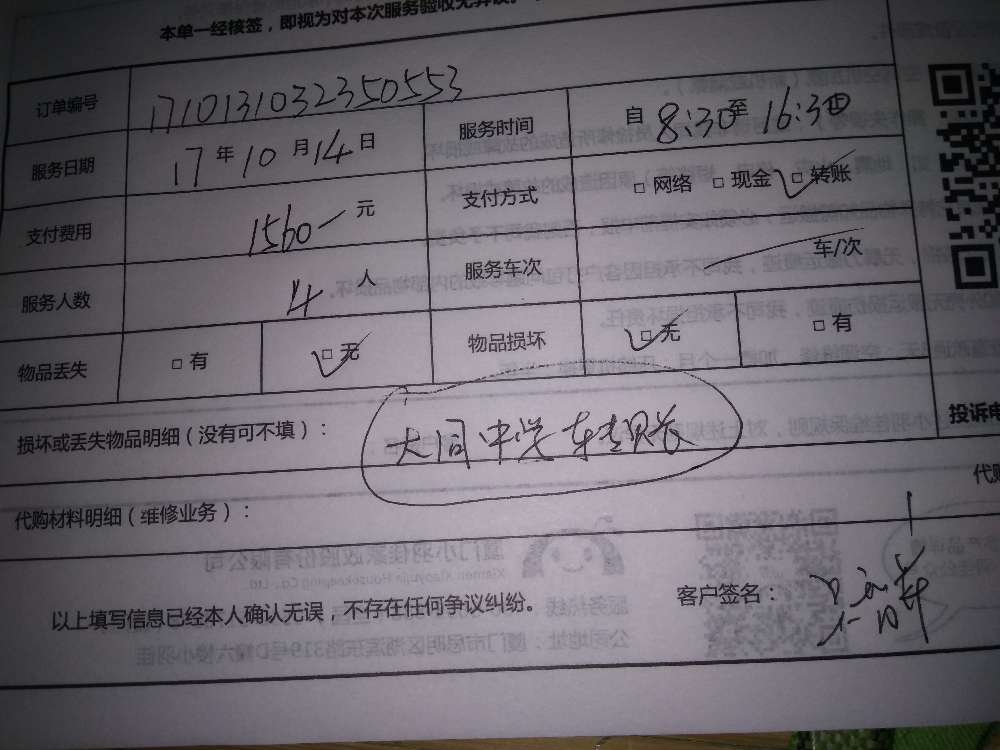 本单一经核签，即视为对本次服务验收无异议。
订单编号 1710131032350553
服务日期 17 年 10 月 14 日 服务时间 自 8:30 至 16:30
支付费用 1560 元 支付方式 □ 网络 □ 现金 □ 转账
服务人数 4 人 服务车次 车/次
物品丢失 □ 有 □ 无 物品损坏 □ 无 □ 有
损坏或丢失物品明细（没有可不填）： 大同中学
投诉电
代购材料明细（维修业务）：
代购
以上填写信息已经本人确认无误，不存在任何争议纠纷。 客户签名：